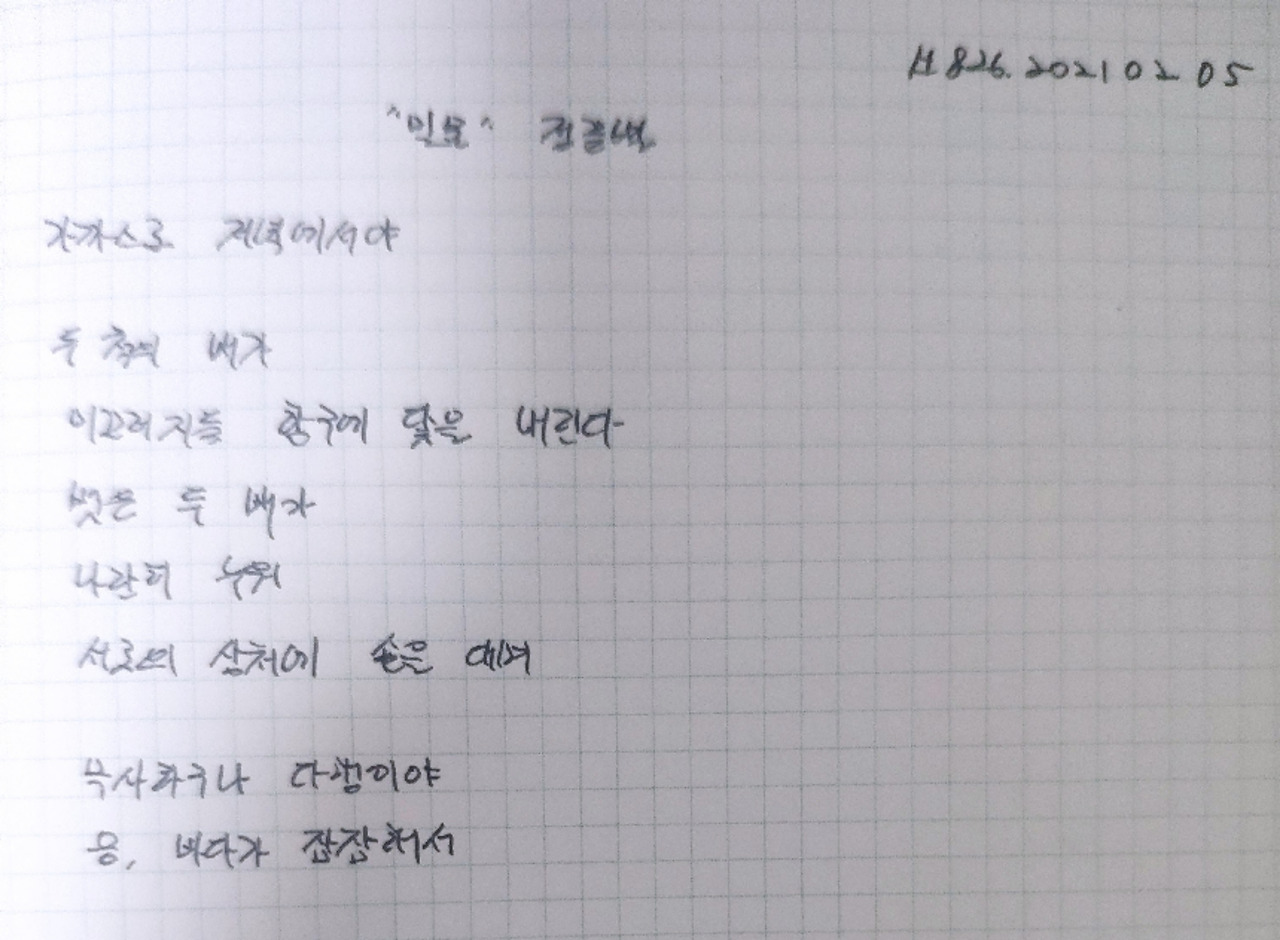 #826. 2021 02 05
"밀물" 정끝별
가까스로 저녁에서야
두 척의 배가
미끄러지듯 항구에 닻을 내린다
벗은 두 배가
나란히 누워
서로의 상처에 손을 대며
무사하구나 다행이야
응, 바다가 잠잠해서